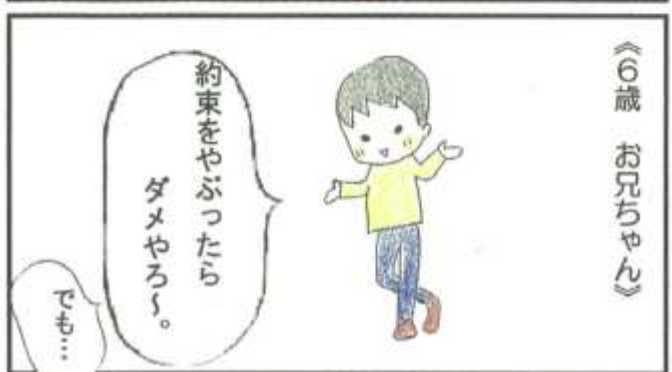 《6歳　お兄ちゃん》
約束をやぶったら
ダメやろ~。
でも…